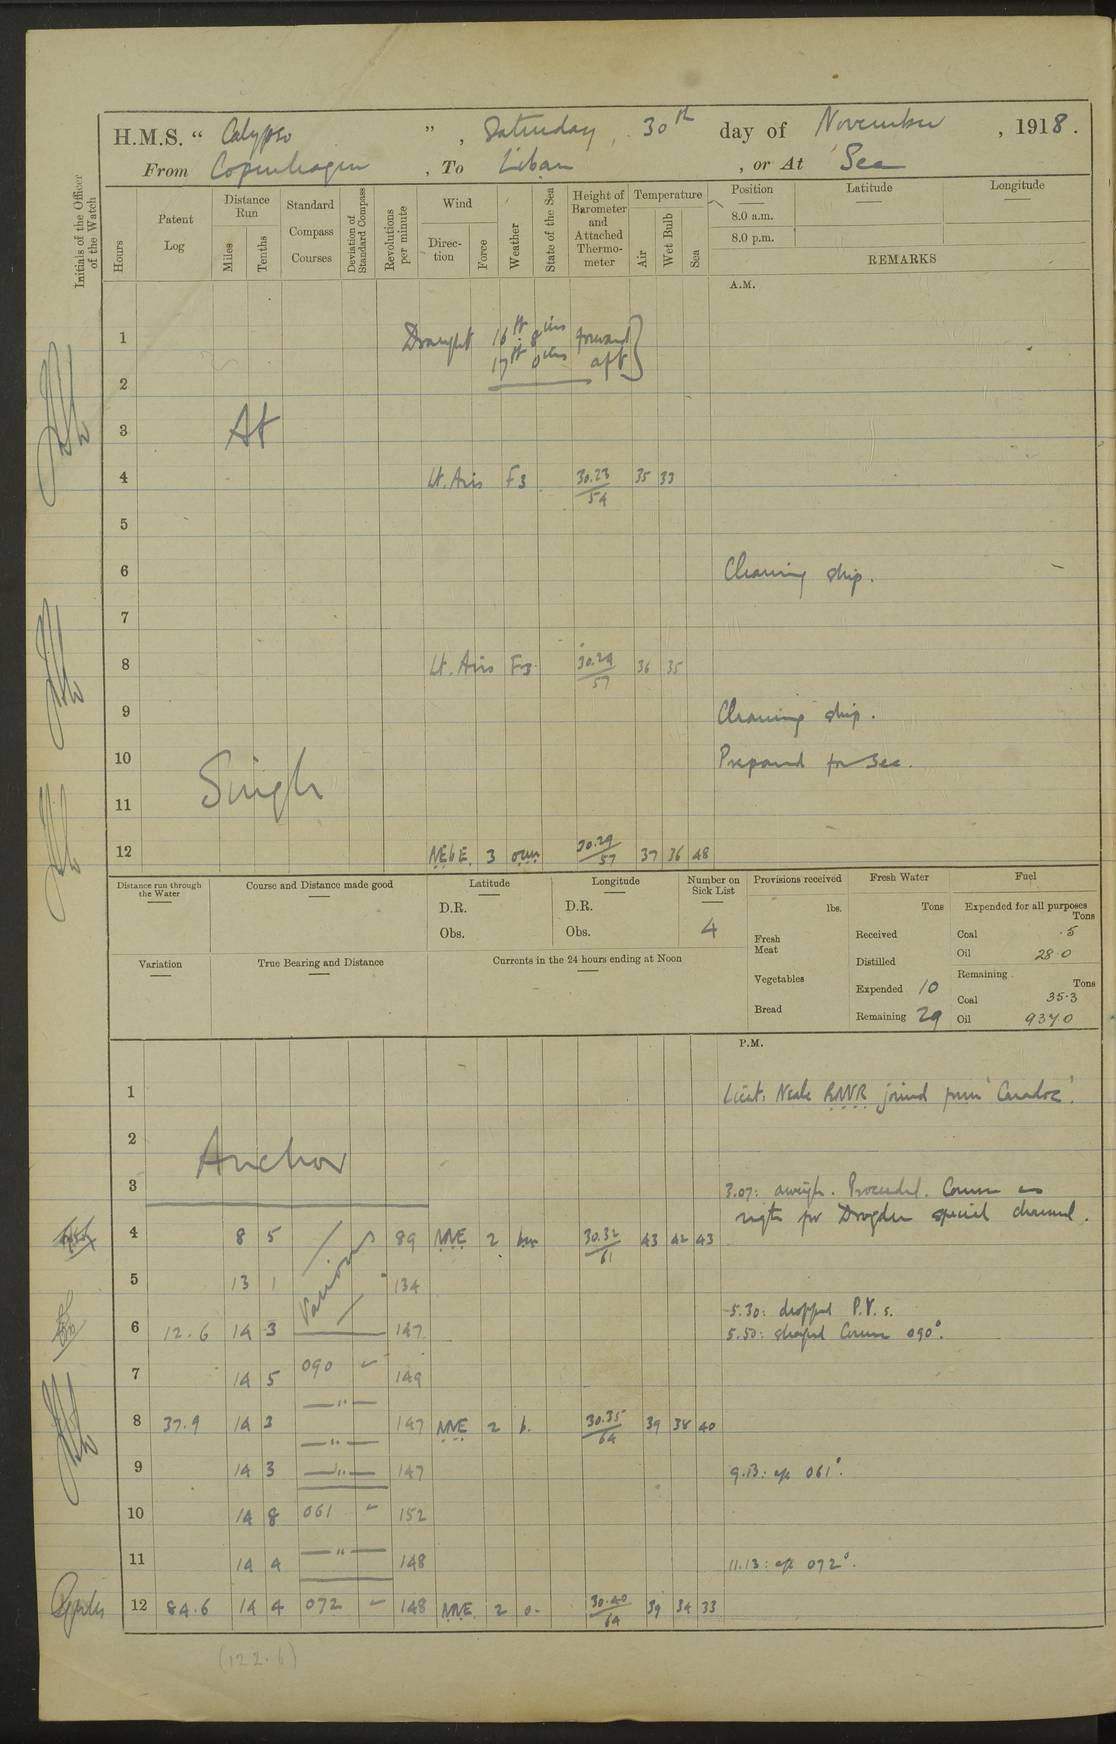 H.M.S. " Calypso ", Saturday, 30th day of November, 1918.
From Copenhagen, To Libau, or At Sea
Initials of the Officer of the Watch
Hours
Patent Log
Distance Run
Miles
Tenths
Standard Compass Courses
Deviation of Standard Compass
Revolutions per minute
Wind
Direction
Force
Weather
State of the Sea
Height of Barometer and Attached Thermometer
Temperature
Air
Wet Bulb
Sea
Position
Latitude
Longitude
8.0 a.m.
8.0 p.m.
REMARKS
A.M.
1 Draught 16ft 8ins forward
17ft 0ins aft
2
3 At
4 Lt. Airs F3 30.23 35 33
54
5
6 Cleaning ship.
7
8 Lt. Airs F3 30.29 36 35
57
9 Cleaning ship.
10 Prepared for Sea.
Single
11
12 NEbE 3 ocm 30.29 37 36 48
57
Distance run through the Water
Course and Distance made good
Latitude
D.R.
Obs.
Longitude
D.R.
Obs.
Number on Sick List
4
Provisions received
lbs.
Fresh Meat
Vegetables
Bread
Fresh Water
Tons
Received
Distilled
Expended 10
Remaining 29
Fuel
Expended for all purposes
Tons
Coal .5
Oil 28.0
Remaining
Tons
Coal 35.3
Oil 937.0
Variation
True Bearing and Distance
Currents in the 24 hours ending at Noon
P.M.
1 Lieut. Neale RNVR joined from 'Caradoc'.
2 Anchor
3 3.07: aweigh. Proceeded. Course as
reqte for Drogden special channel.
4 8 5 Various 89 NNE 2 bm 30.32 43 42 43
61
5 13 1 134
5.30: dropped P.V.s.
6 12.6 14 3 147 5.50: shaped Course 090°.
7 14 5 090 149
8 37.9 14 3 " 147 NNE 2 b. 30.35 39 38 40
64
9 14 3 " 147 9.13: a/c 061°.
10 14 8 061 152
11 14 4 " 148 11.13: a/c 072°.
12 84.6 14 4 072 148 NNE 2 o. 30.40 39 34 33
64
(122.6)